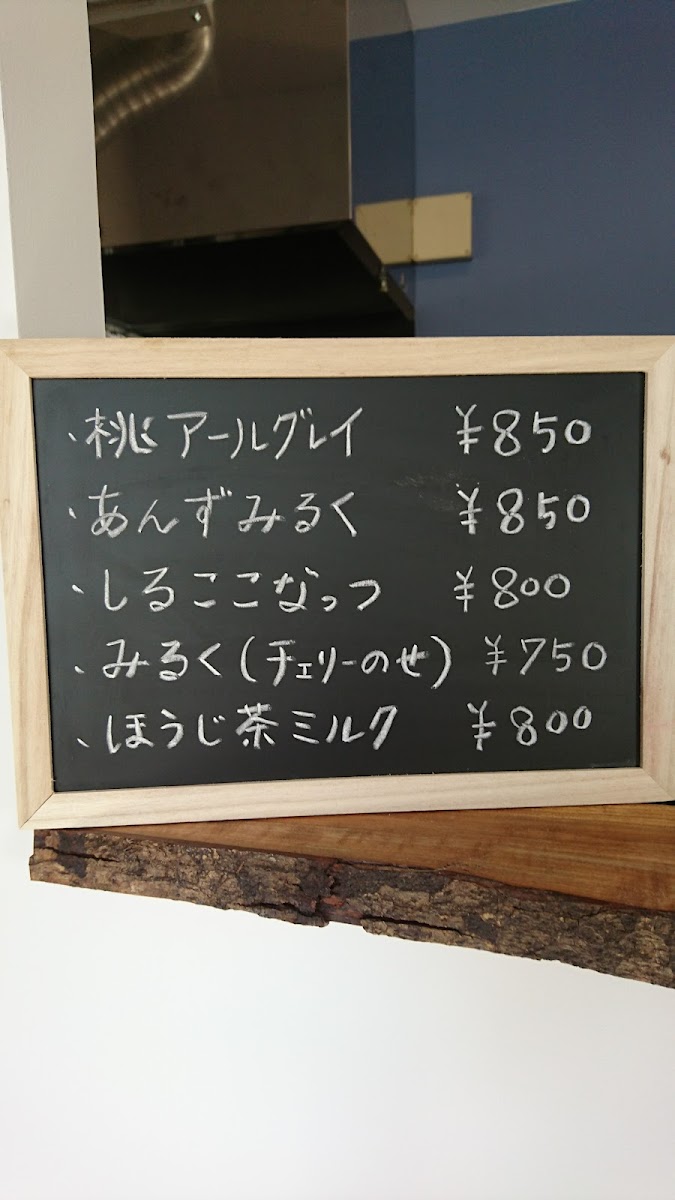 ・桃アールグレイ ¥850
・あんずみるく ¥850
・しるここなっつ ¥800
・みるく(チェリーのせ) ¥750
・ほうじ茶ミルク ¥800